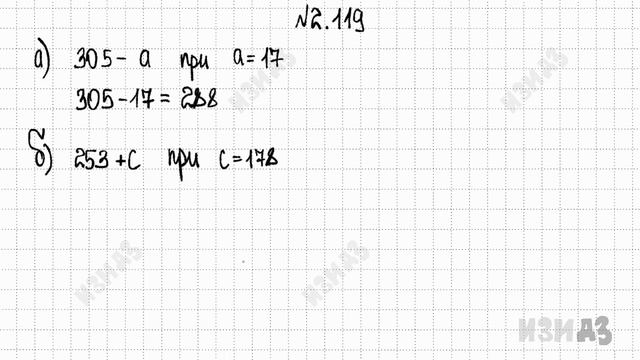 №2.119
а) 305 - a при a = 17
305 - 17 = 288
б) 253 + c при c = 178
ИЗИ ДЗ
ИЗИ ДЗ
ИЗИ ДЗ
ИЗИ ДЗ
ИЗИ ДЗ